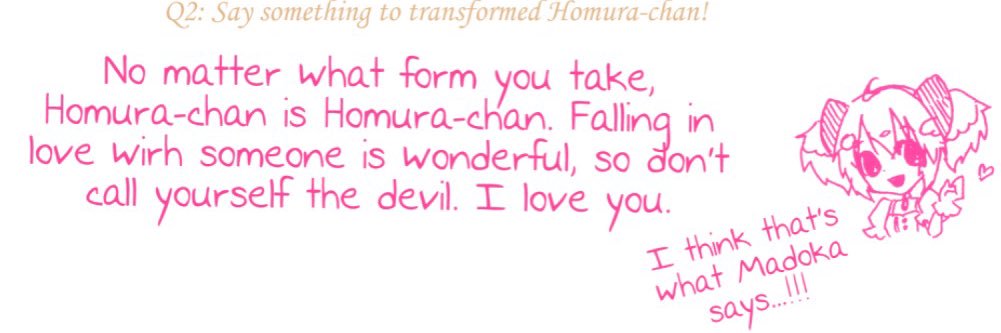 Q2: Say something to transformed Homura-chan!
No matter what form you take,
Homura-chan is Homura-chan. Falling in
love wirh someone is wonderful, so don't
call yourself the devil. I love you.
I think that's
what Madoka
says...!!!